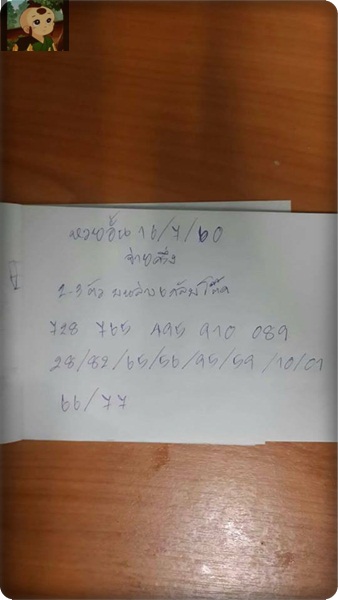 หวยอั้น 16/7/60
จ่ายครึ่ง
2-3 ตัว บนล่าง กลับ โต๊ด
728 765 495 910 089
28/82/65/56/95/59/10/01
66/77